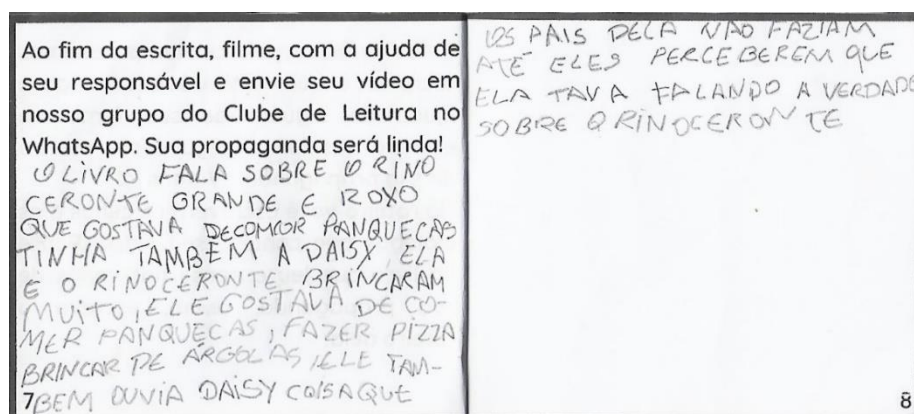 Ao fim da escrita, filme, com a ajuda de
seu responsável e envie seu vídeo em
nosso grupo do Clube de Leitura no
WhatsApp. Sua propaganda será linda!
O LIVRO FALA SOBRE O RINO
CERONTE GRANDE E ROXO
QUE GOSTAVA DECOMCOR PANQUECAS
TINHA TAMBÉM A DAISY, ELA
E O RINOCERONTE BRINCARAM
MUITO, ELE GOSTAVA DE CO-
MER PANQUECAS, FAZER PIZZA
BRINCAR DE ÁRGOLAS, ELE TAM-
BEM OUVIA DAISY COISA QUE
7
OS PAIS DELA NÃO FAZIAM
ATÉ ELES PERCEBEREM QUE
ELA TAVA FALANDO A VERDADE
SOBRE O RINOCERONTE
8